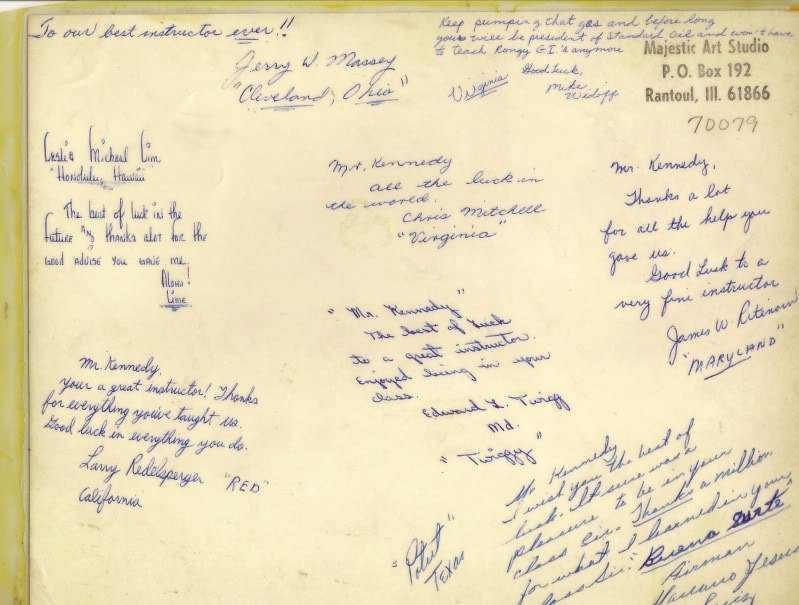 To our best instructor ever!!
Jerry W. Massey
"Cleveland, Ohio"
Keep pumping that gas and before long
you will be president of Standard Oil and won't have
to teach Rongy GI's anymore
Good luck,
Virginia
Mike
Majestic Art Studio
P.O. Box 192
Rantoul, Ill. 61866
70079
Leslie Micheal Lim
"Honolulu, Hawaii"
The best of luck in the
future and thanks alot for the
good advise you gave me.
Aloha!
Lime
Mr. Kennedy
all the luck in
the world.
Chris Mitchell
"Virginia"
Mr. Kennedy,
Thanks a lot
for all the help you
gave us.
Good Luck to a
very fine instructor
James W. Ritenour
"MARYLAND"
"Mr. Kennedy"
The best of luck
to a great instructor.
Enjoyed being in your
class.
Edward L. Twigg
Md.
"Twiggy"
Mr. Kennedy,
Your a great instructor! Thanks
for everything you've taught us.
Good luck in everything you do.
Larry Redelsperger "RED"
California
Mr. Kennedy
I wish you the best of
luck. It sure was a
pleasure to be in your
class Sir. Thanks a million
for what I learned in your
class Sir. "Buena Suerte"
Airman
Mariano Jesus
"
Texas